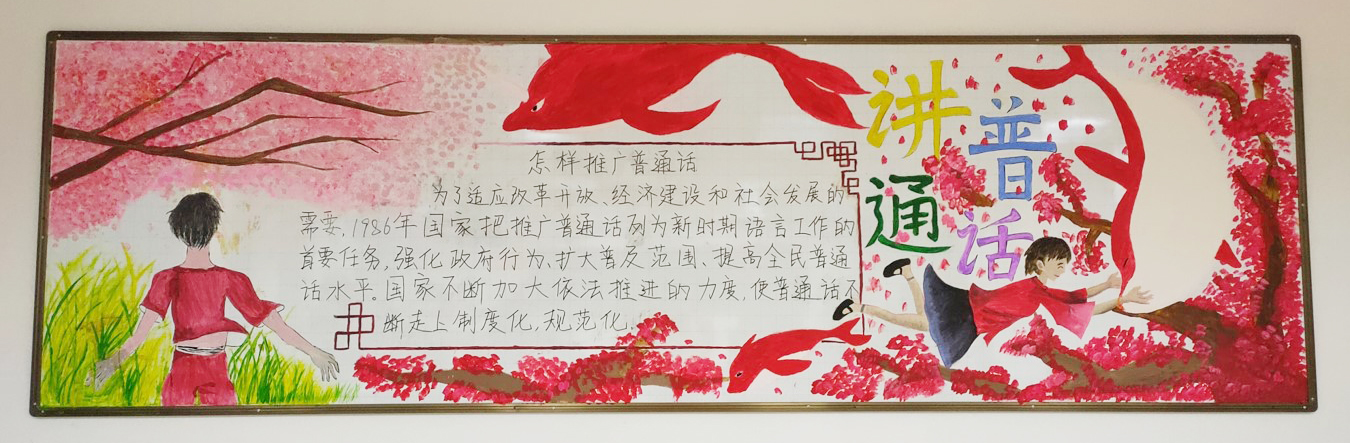 怎样推广普通话
为了适应改革开放、经济建设和社会发展的
需要，1986年国家把推广普通话列为新时期语言工作的
首要任务，强化政府行为、扩大普及范围、提高全民普通
话水平。国家不断加大依法推进的力度，使普通话不
断走上制度化，规范化.
讲普
通话